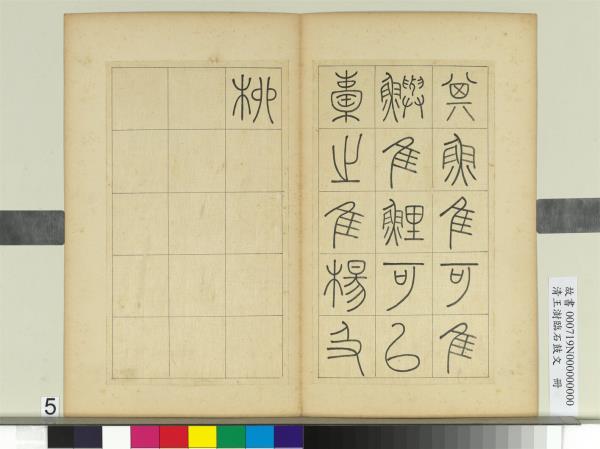 其魚隹可隹
鱮隹鯉可㠯
橐之隹楊及
柳
故書 000719N000000000
清王澍臨石鼓文 冊
5